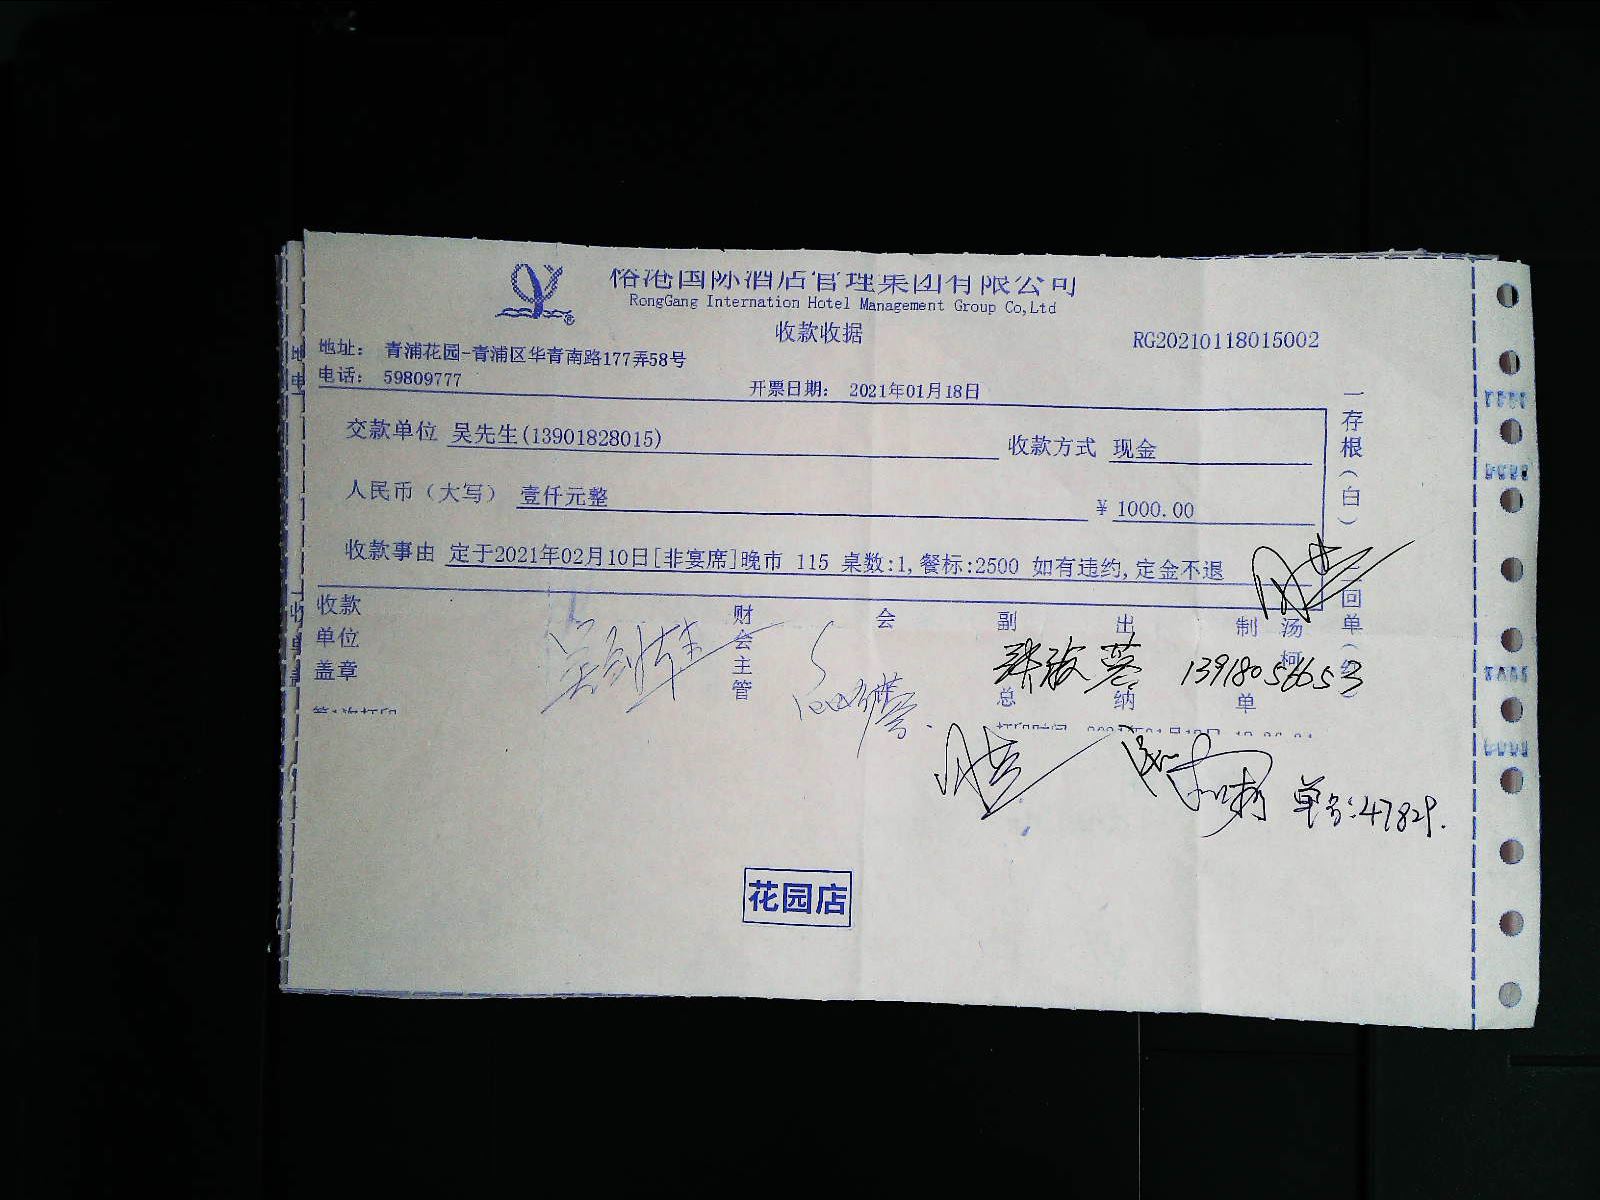 裕港国际酒店管理集团有限公司
RongGang Internation Hotel Management Group Co,Ltd
收款收据
RG20210118015002
地址： 青浦花园-青浦区华青南路177弄58号
电话： 59809777
开票日期： 2021年01月18日
交款单位 吴先生(13901828015)
收款方式 现金
人民币（大写） 壹仟元整
¥ 1000.00
收款事由 定于2021年02月10日[非宴席]晚市 115 桌数:1,餐标:2500 如有违约,定金不退
一存根（白）
回单
收款单位盖章
财会主管
会
副总
出纳
制单
汤柯
13918056653
单号:47829.
花园店